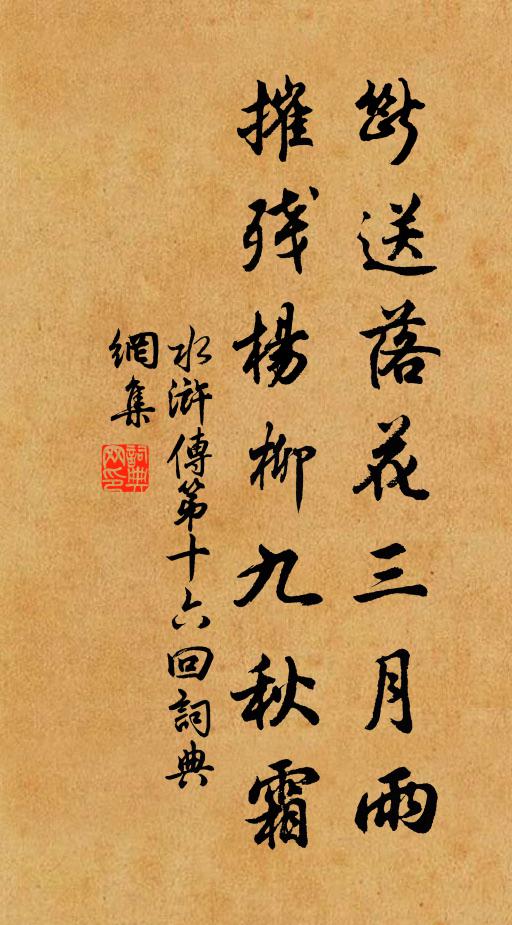 斷送落花三月雨
摧残楊柳九秋霜
水滸傳第十六回詞典
網集
詞典
网印